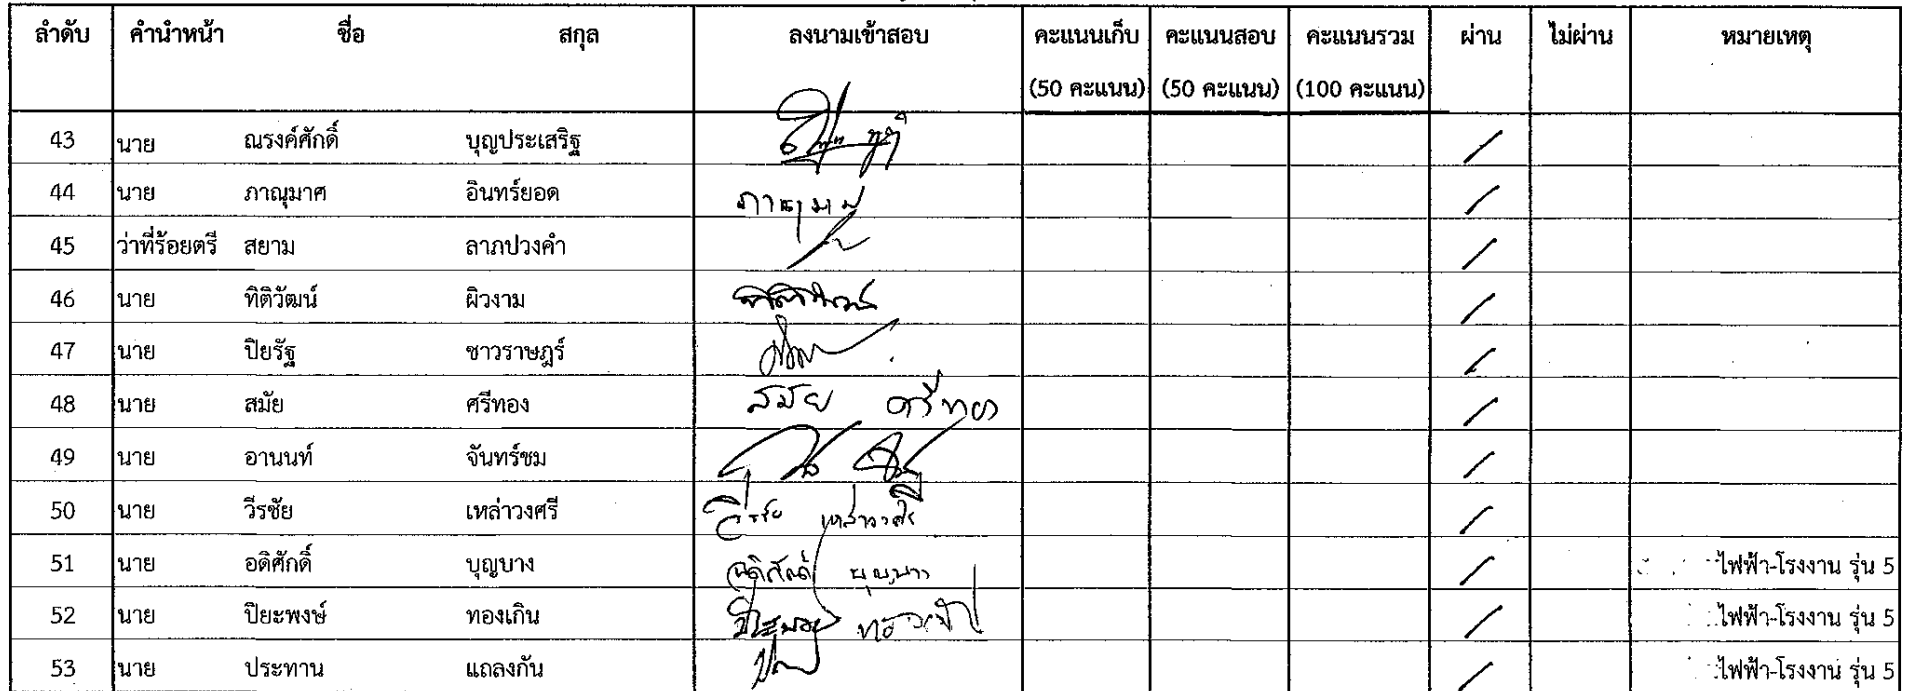 ลำดับ คำนำหน้า ชื่อ สกุล ลงนามเข้าสอบ คะแนนเก็บ คะแนนสอบ คะแนนรวม ผ่าน ไม่ผ่าน หมายเหตุ
(50 คะแนน) (50 คะแนน) (100 คะแนน)
43 นาย ณรงค์ศักดิ์ บุญประเสริฐ /
44 นาย ภาณุมาศ อินทร์ยอด ภาณุมาศ /
45 ว่าที่ร้อยตรี สยาม ลาภปวงคำ /
46 นาย ทิติวัฒน์ ผิวงาม /
47 นาย ปิยรัฐ ชาวราษฎร์ /
48 นาย สมัย ศรีทอง สมัย ศรีทอง /
49 นาย อานนท์ จันทร์ชม /
50 นาย วีรชัย เหล่าวงศรี วีรชัย เหล่าวงศรี /
51 นาย อดิศักดิ์ บุญบาง อดิศักดิ์ บุญบาง /  ไฟฟ้า-โรงงาน รุ่น 5
52 นาย ปิยะพงษ์ ทองเกิน /  ไฟฟ้า-โรงงาน รุ่น 5
53 นาย ประทาน แถลงกัน /  ไฟฟ้า-โรงงาน รุ่น 5